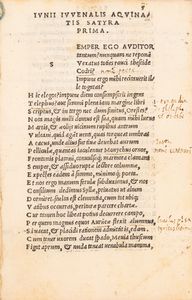 IVNII IVVENALIS AQVINA/
TIS SATYRA
PRIMA.
SEMPER EGO AVDITOR
tantum? nunquam ne reponā
Vexatus toties rauci theseide
Codri?
Impune ergo mihi recitauerit il/
le togatas?
H ic elegos? impune diem consumpserit ingens
T elephus? aut summi plena iam margine libri
S criptus, et in tergo nec dum finitus, Orestes?
N ota magis nulli domus est sua, quam mihi lucus
M artis, et aeoliis uicinum rupibus antrum
V ulcani. quid agant uenti, quas torqueat umbras
A eacus, unde alius furtiuae deuehat aurum
P elliculae, quantas iaculetur Monychus ornos,
F rontonis platani, conuulsaque marmora clamant
S emper, et assiduo ruptae lectore columnae.
E xpectes eadem a summo, minimoque poeta.
E t nos ergo manum ferulae subduximus, et nos
C onsilium dedimus Syllae, priuatus ut altum
D ormiret. stulta est clementia, cum tot ubique
V atibus occurras, periturae parcere chartae.
C ur tamen hoc libeat potius decurrere campo,
P er quem magnus equos Auruncae flexit alumnus,
S i uacat, et placidi rationem admittitis, edam.
C um tener uxorem ducat spado, Meuia thuscum
F igat aprum, et nuda teneat uenabula mamma,